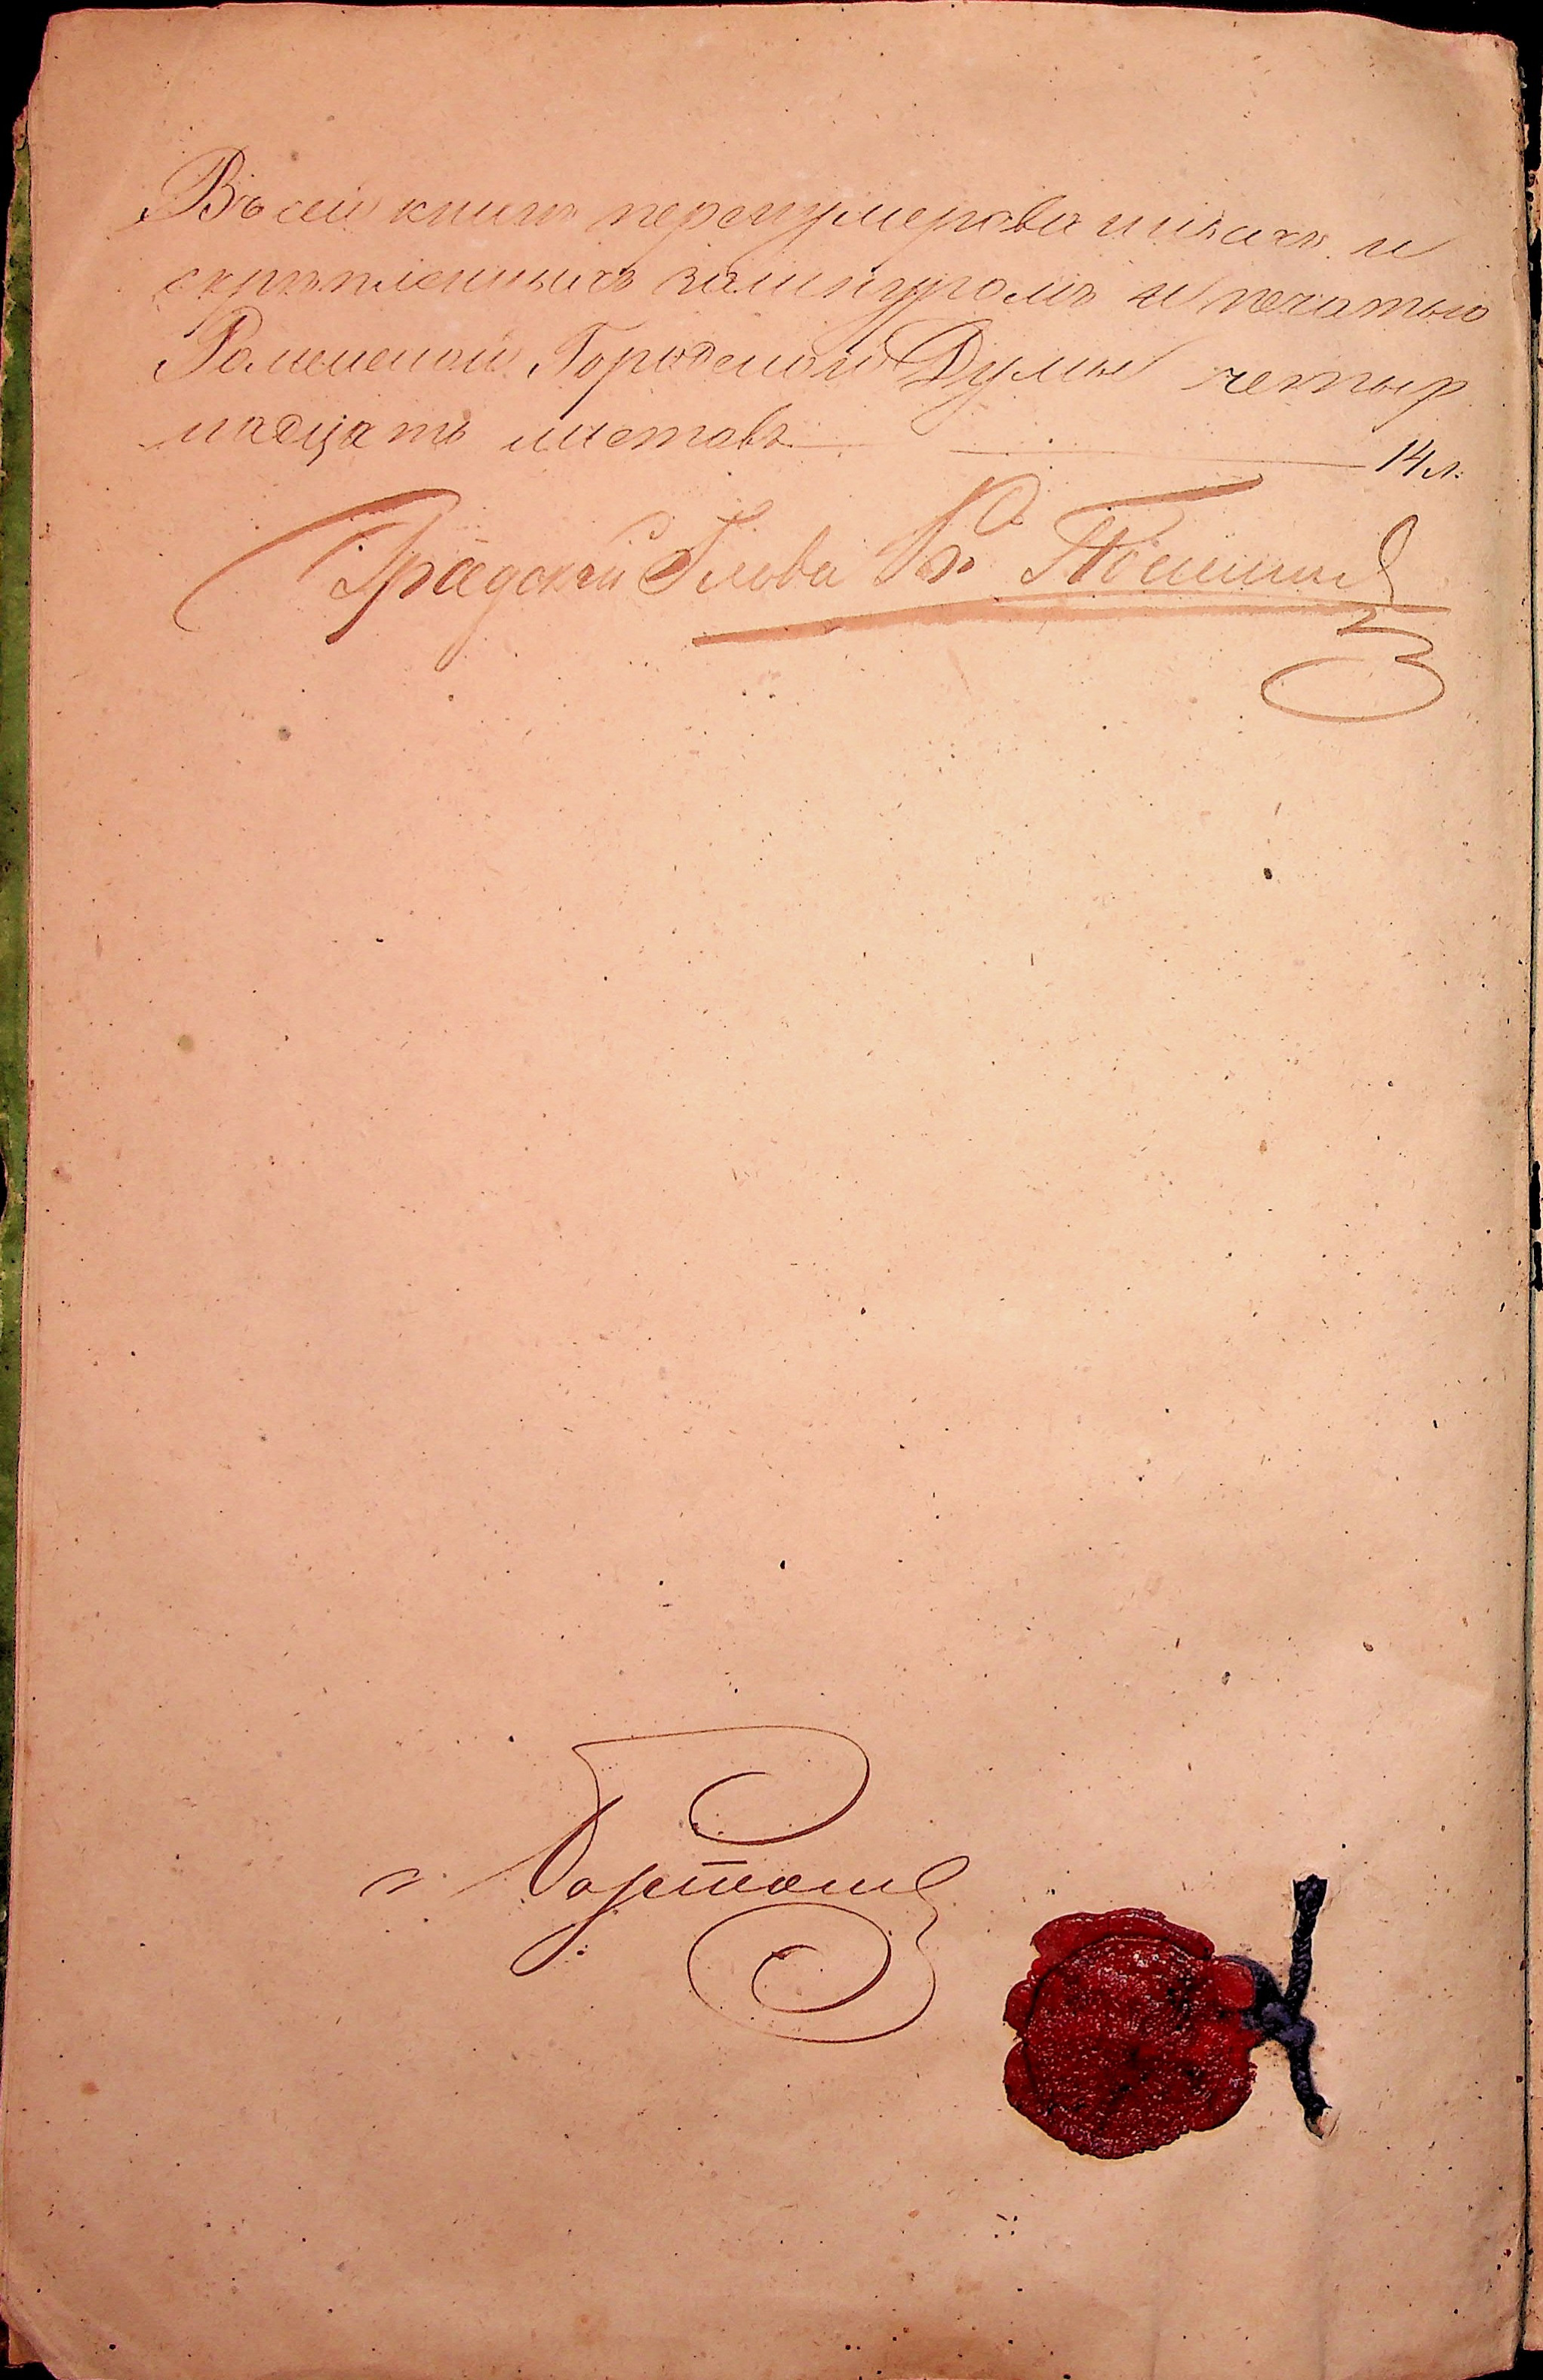 Въ сей книгѣ перенумерованныхъ и
скрѣпленныхъ зашнуромъ и печатью
Роменской Городской Думы четыр
надцать листовъ 14 л.
Градской Глова